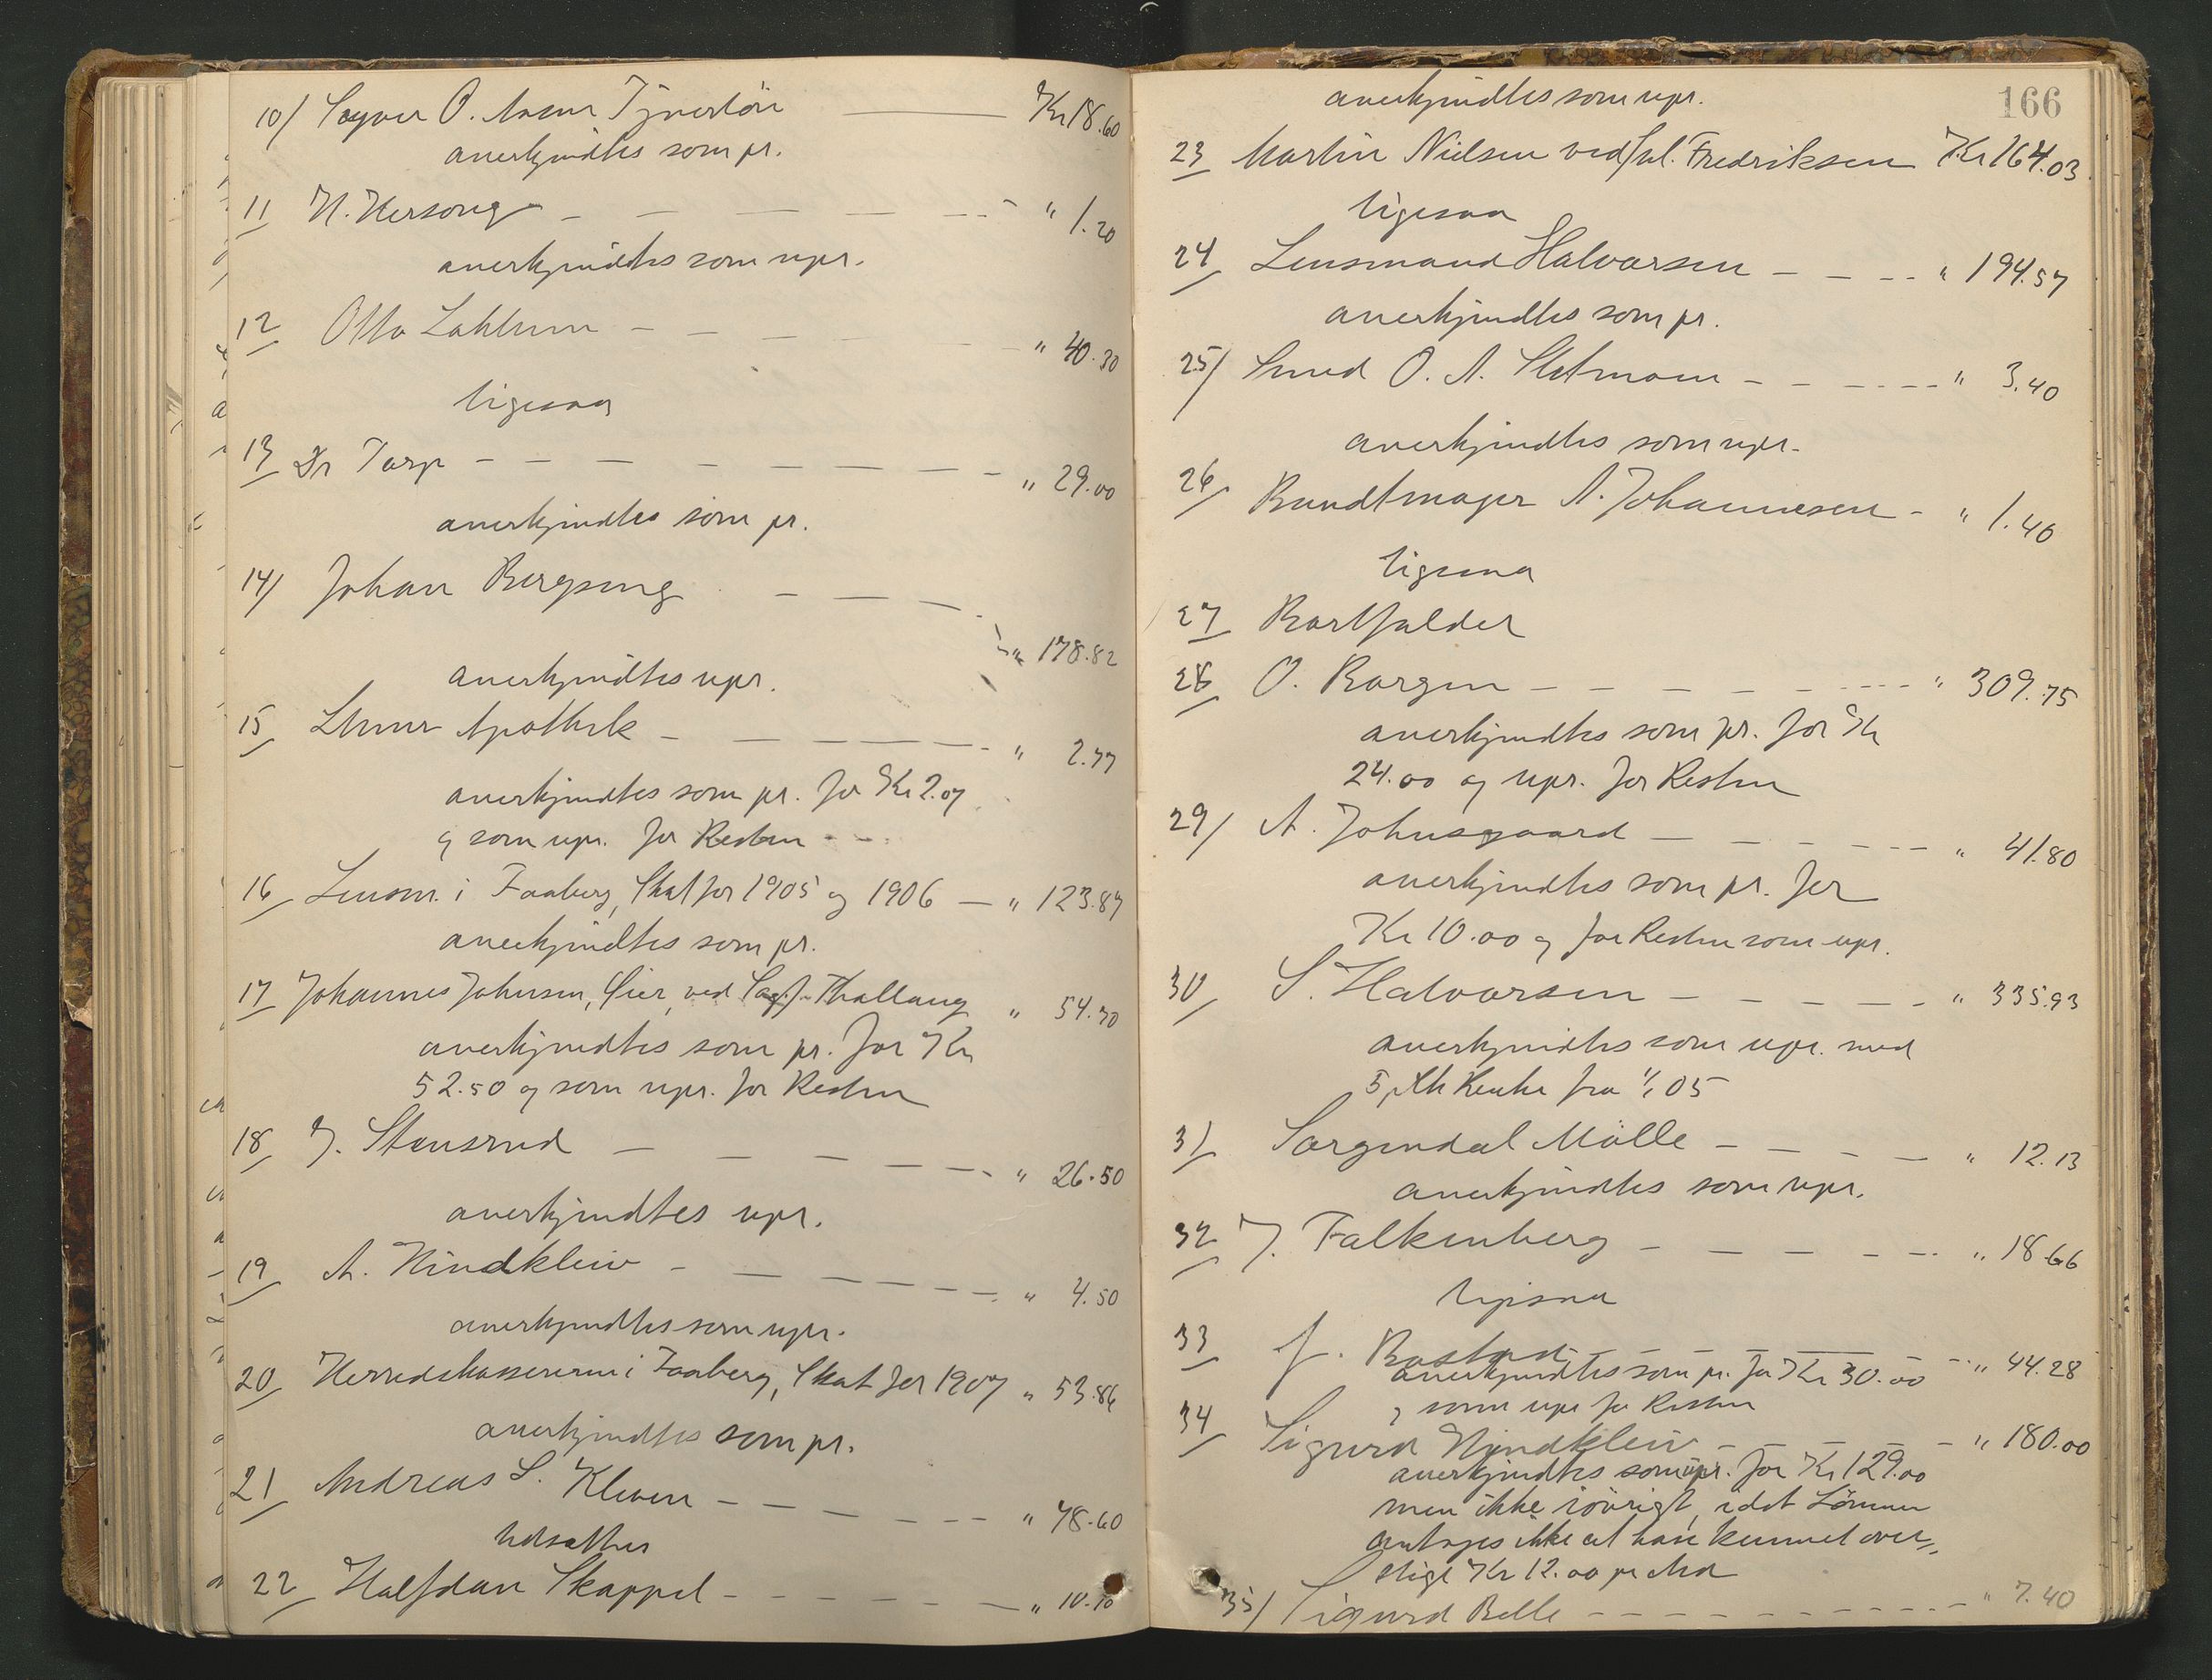 10/ O. Kr 18.60
anerkjendtes som pr.
11 H. " 1.20
anerkjendtes som upr.
12 Otto " 40.30
ligesaa
13 Dr Torp " 29.00
anerkjendtes som pr.
14/ Johan Bergseng
" 178.82
anerkjendtes upr.
15 Apothek " 2.77
anerkjendtes som pr. for Kr 2.07
og som upr. for Resten
16 Lensm. i Faaberg, Skat for 1905 og 1906 " 123.87
anerkjendtes som pr.
17 Johannes Johnsen, Øier, ved Sagf. Thallaug " 54.70
anerkjendtes som pr. for Kr
52.50 og som upr. for Resten
18 J. Stensrud " 26.50
anerkjendtes upr.
19 A. Hindkleiv " 4.50
anerkjendtes som upr.
20 Herredskassereren i Faaberg, Skat for 1907 " 53.86
anerkjendtes som pr.
21 Andreas S. Kleven " 78.60
Udsattes
22 Halfdan Skappel " 10.70
166
anerkjendtes som upr.
23 Martin Nielsen ved Fredriksen Kr 164.03
ligesaa
24 Lensmand Halvorsen " 194.57
anerkjendtes som pr.
25/ Smed O. A. " 3.40
anerkjendtes som upr.
26 Bundtmager A. Johannesen " 1.40
ligesaa
27 Bortfalder
28 O. " 309.75
anerkjendtes som pr. for Kr
24.00 og upr. for Resten
29/ A. Johnsgaard " 41.80
anerkjendtes som pr. for
Kr 10.00 og for Resten som upr.
30 S. Halvorsen " 335.93
anerkjendtes som upr. med
5 pCt Rente fra 1/1 05
31 Mölle " 12.13
anerkjendtes som upr.
32 J. Falkenberg " 18.66
ligesaa
33 J. " 44.28
anerkjendtes som pr. for Kr 30.00
og som upr for Resten
34 Sigurd Hindkleiv " 180.00
anerkjendtes som pr. for Kr 129.00
men ikke iövrigt, idet Lönnen
antages ikke at have kunnet over-
stige Kr 12.00 pr Md
35/ Sigurd Belle " 7.40